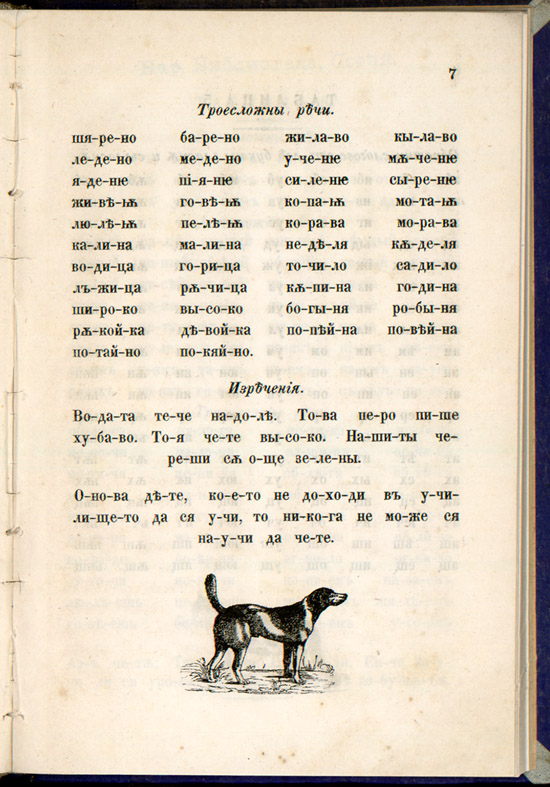 7
Троесложны рѣчи.
ша-ре-но ба-ре-но жи-ла-во кы-ла-во
ле-де-но ме-де-но у-че-нѥ мѫ-че-нѥ
я-де-нѥ ші-я-нѥ си-ле-нѥ сы-ре-нѥ
жи-вѣ-ѭ го-вѣ-ѭ ко-па-ѭ мо-та-ѭ
лю-лѣ-ѭ пе-лѣ-ѭ ко-ра-ва мо-ра-ва
ка-ли-на ма-ли-на не-дѣ-ля кѫ-де-ля
во-ди-ца го-ри-ца то-чи-ло са-ди-ло
лъ-жи-ца рѫ-чи-ца кѫ-пи-на го-ди-на
ши-ро-ко вы-со-ко бо-гы-ня ро-бы-ня
рѫ-кой-ка дѣ-вой-ка по-пѣй-на по-вѣй-на
по-тай-но по-кяй-но.
Изрѣченія.
Во-да-та те-че на-до-лѣ. То-ва пе-ро пи-ше
ху-ба-во. То-я че-те вы-со-ко. На-ши-ты че-
ре-ши сѫ о-ще зе-ле-ны.
О-но-ва дѣ-те, ко-е-то не до-хо-ди въ у-чи-
ли-ще-то да ся у-чи, то ни-ко-га не мо-же ся
на-у-чи да че-те.